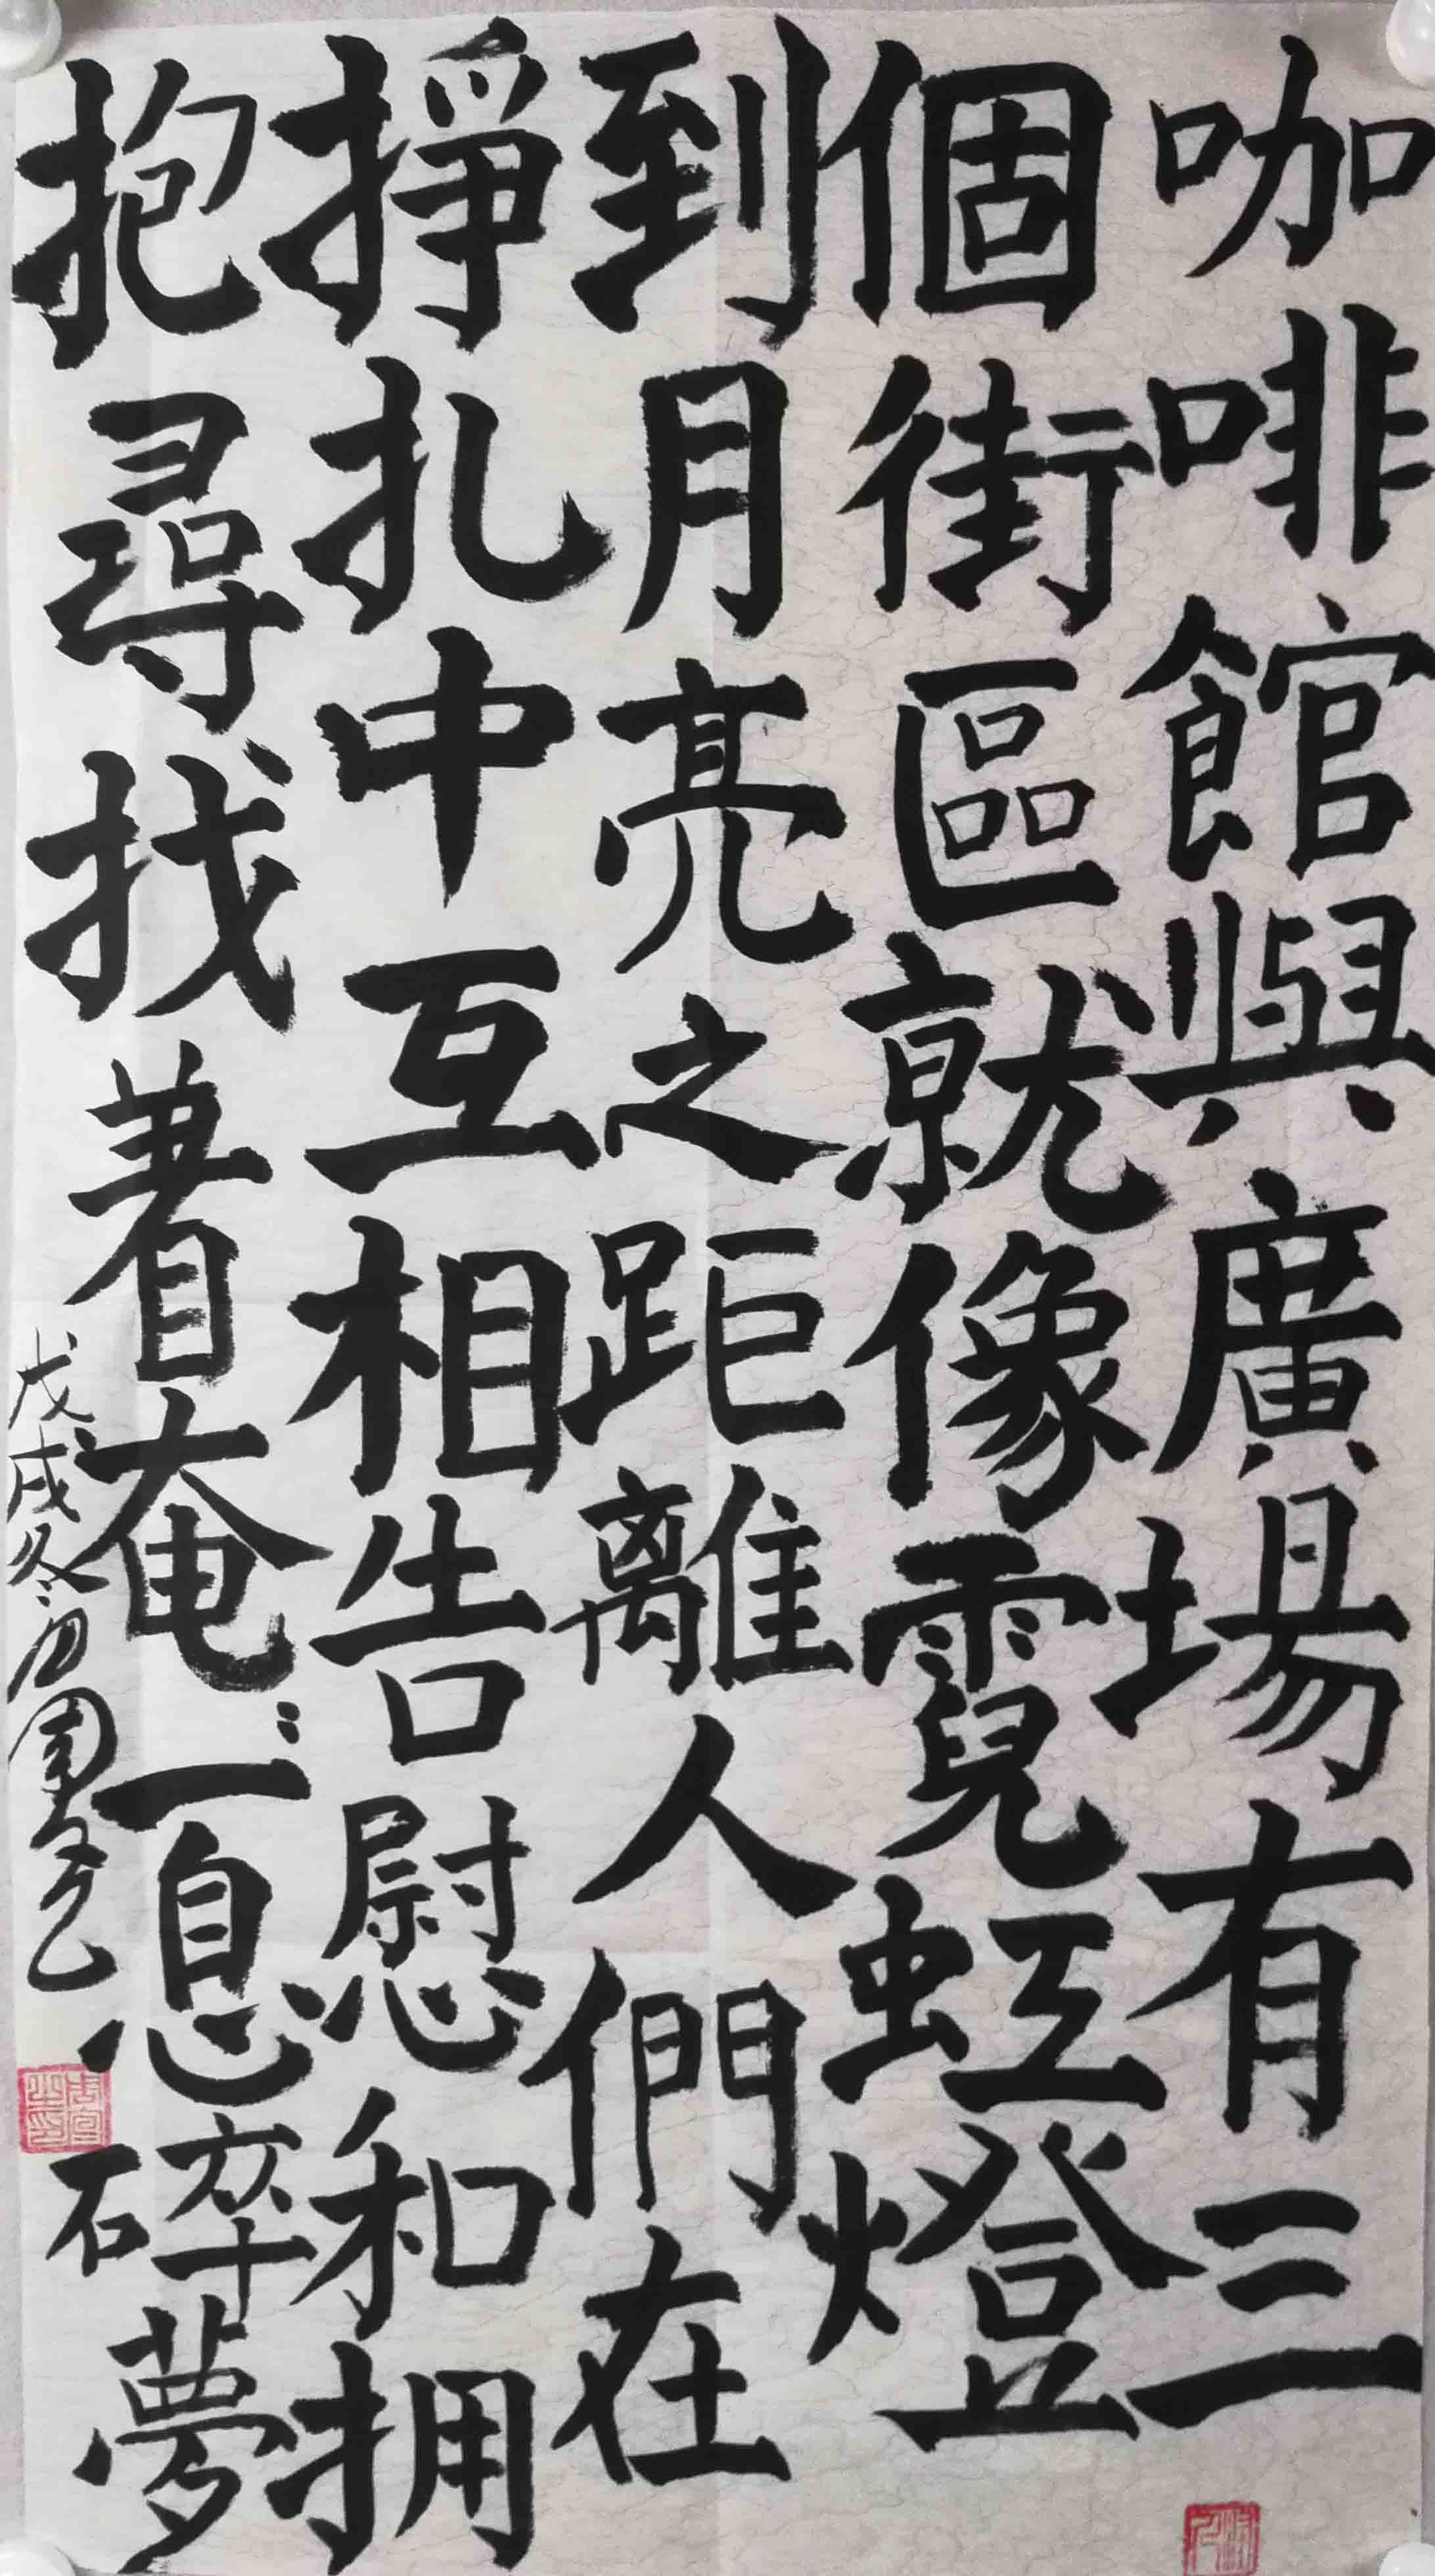 咖啡館與廣場有三
個街區就像霓虹燈
到月亮之距離人們在
掙扎中互相告慰和拥
抱尋找著奄〻一息碎夢
戊戌冬月周